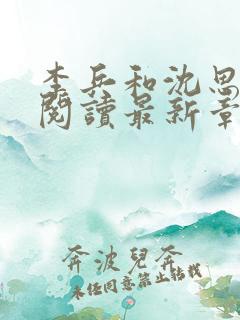 李兵和沈思
閱讀最新章
奔波兒奔
未经同意禁止转载